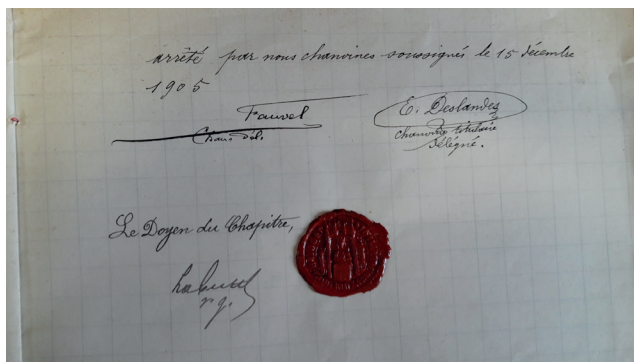 arrêté par nous chanoines soussignés le 15 décembre
1905
Fauvel
Chan. dél.
E. Deslandes
chanoine titulaire
délégué.
Le Doyen du Chapitre,
v. g.